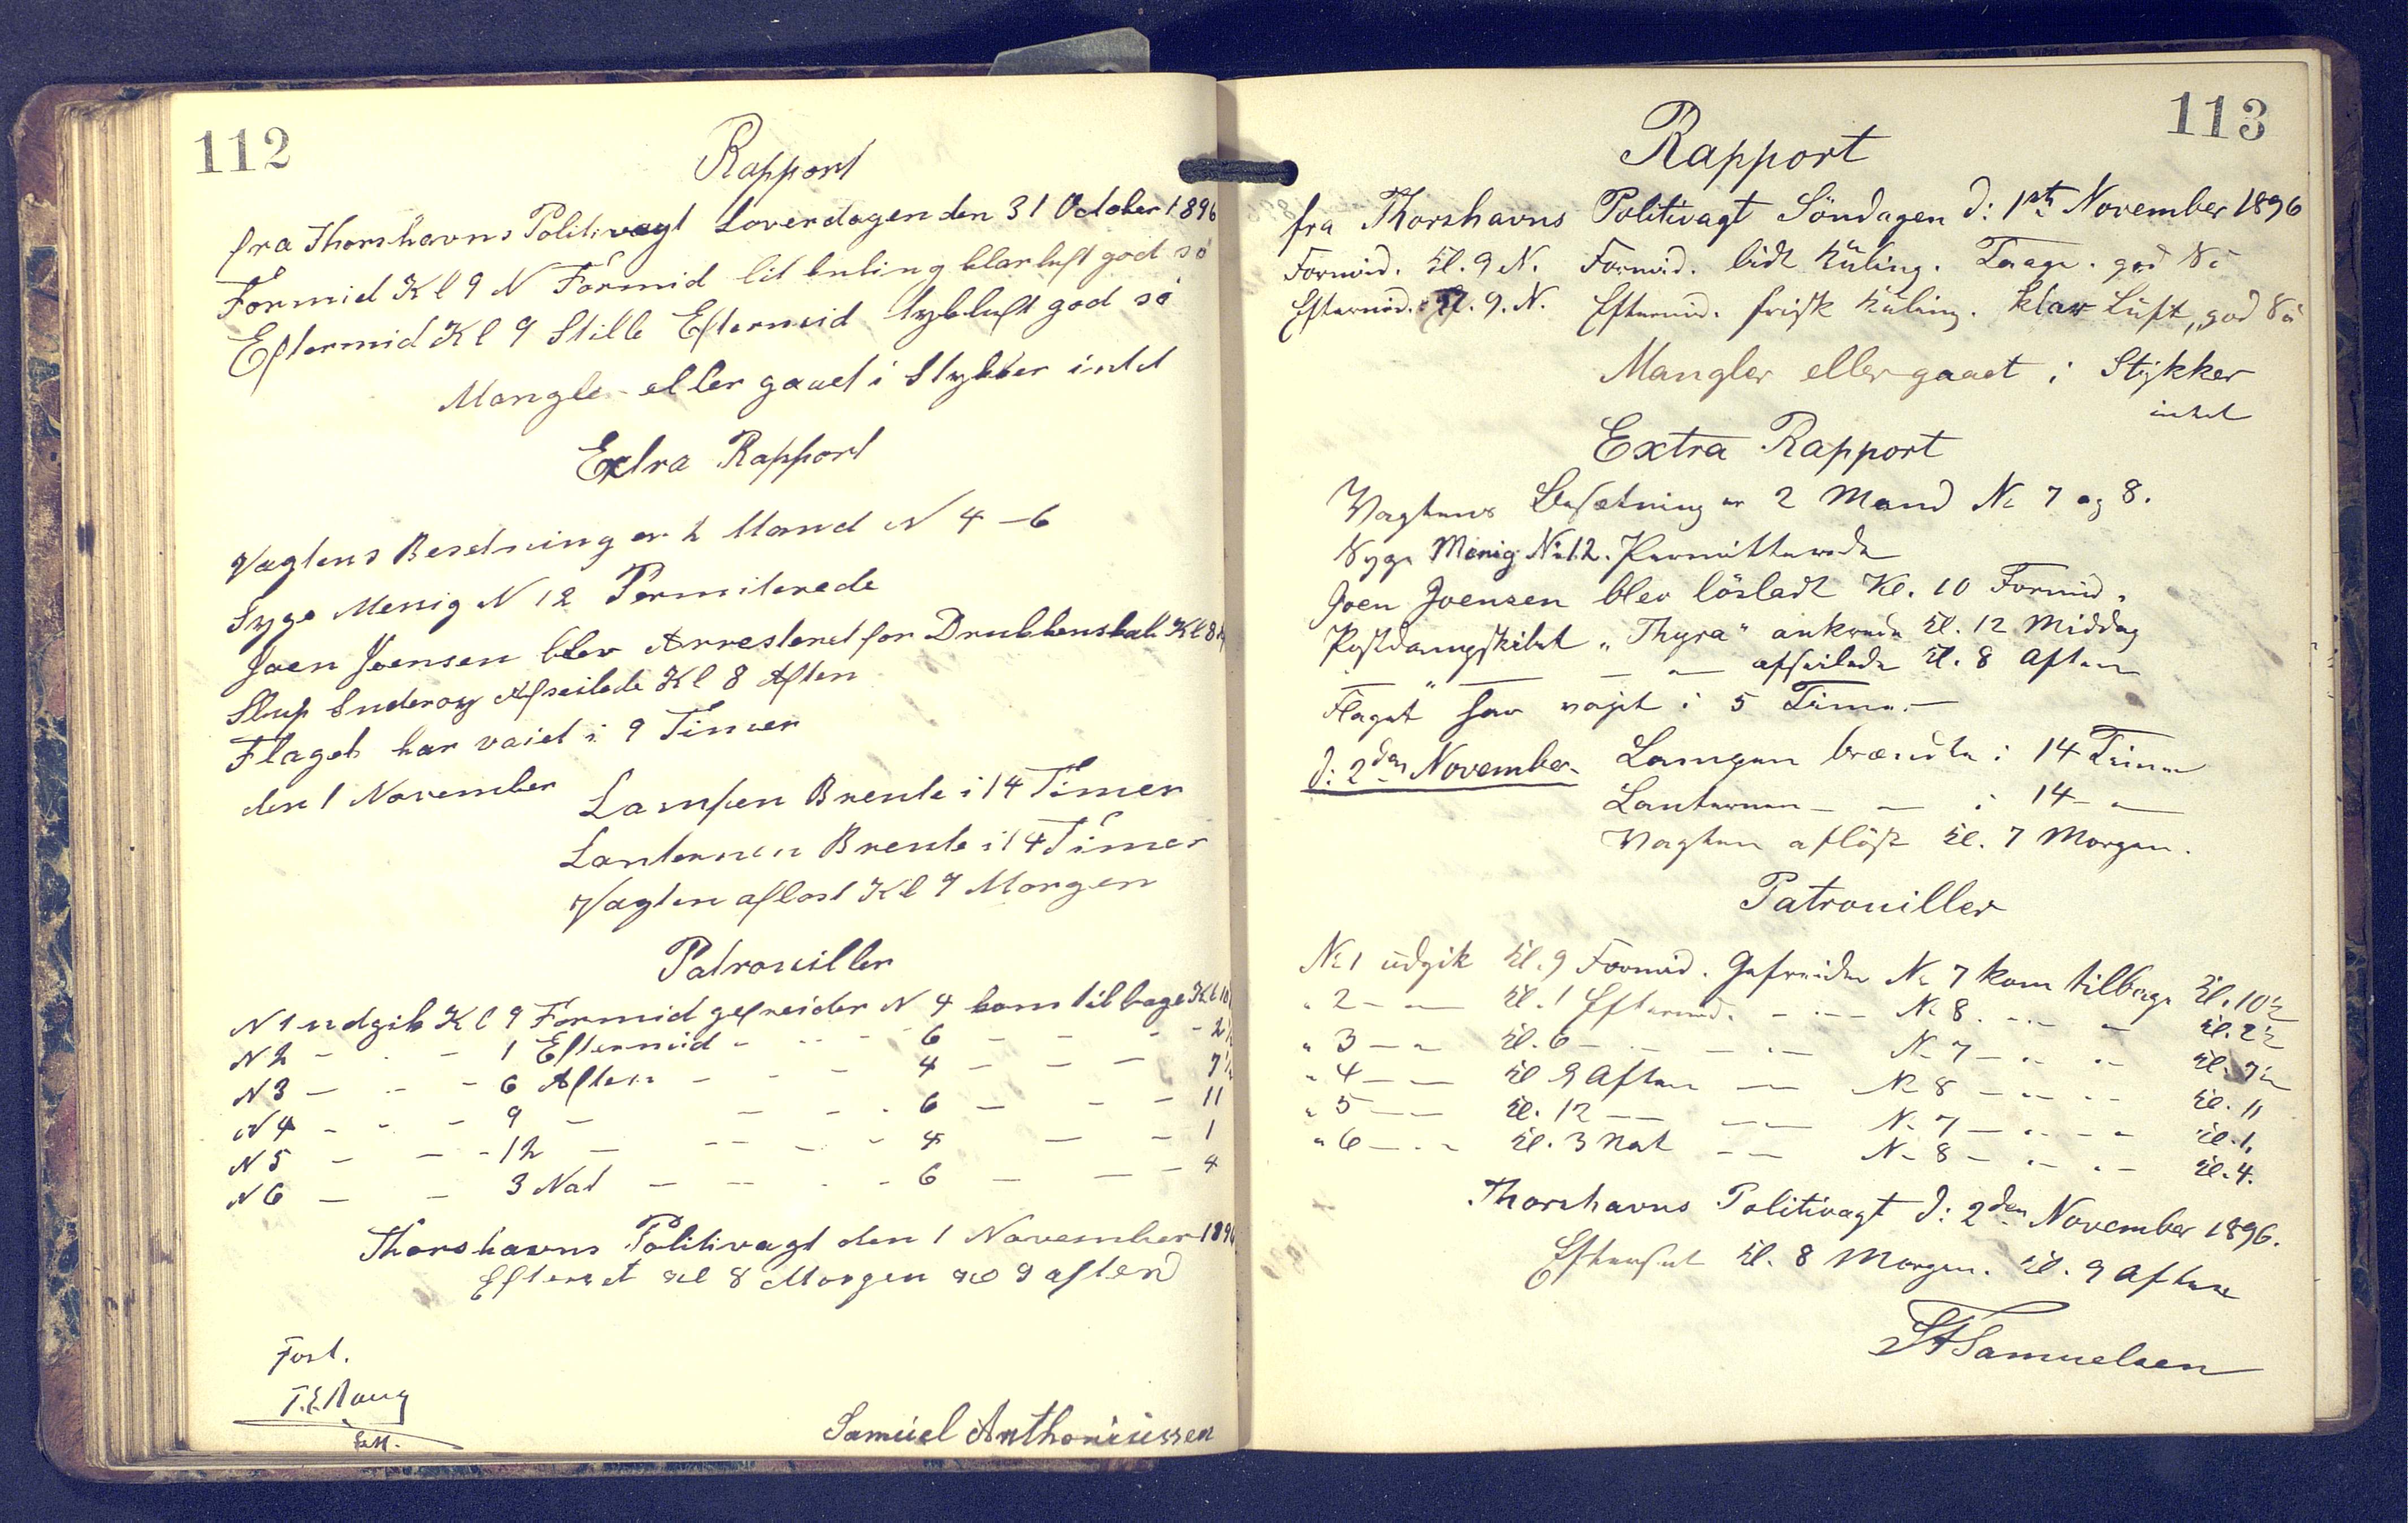 112
Rapport
fra Thorshavns Politivagt Loverdagen den 31 October 1896
Formid Kl 9 N Formid lit kuling klarluft god sö
Eftermid Kl 9 Stille Eftermid tykluft god sö
Mangle eller gaaet i Stykker intet
Extra Rapport
Vagtens Besetning er 2 Mand N 4 – 6
Syge Menig N 12 Permiterede
Joen Joensen blev Arresteret for Drukkenskab Kl 8
Slup Suderoy Afseilede Kl 8 Aften
Flaget har vaiet i 9 Timer
den 1 November Lampen Brente i 14 Timer
Lanternen Brente i 14 Timer
Vagten aflöst Kl 7 Morgen
Patrouiller
N 1 udgik Kl 9 Formid gefreider N 4 kom tilbage Kl 10
N 2 – - – 1 Eftermid - - - - 6 – - – - 2½
N 3 – - - – 6 Aften – – - - 4 – – – 7½
N 4 - - – 9 – – - - 6 – – – 11
N 5 – – - 12 – -- – - 4 – – 1
N 6 – – 3 Nat – -- - - 6 – – – 4
Thorshavns Politivagt den 1 November 1896
Efterset Kl 8 Morgen Kl 9 aften
Samuel Anthoniussen
113
Rapport
fra Thorshavns Politivagt Söndagen d: 1ste November 1896
Formid. Kl. 9 N. Formid. lidt Kuling. Taage. god Sö
Eftermid. Kl. 9. N. Eftermid. frisk Kuling. klar Luft, god Sö
Mangler eller gaaet i Stykker
intet
Extra Rapport
Vagtens Besætning er 2 Mand No 7 og 8.
Syge Menig No 12. Permitterede
Joen Joensen blev lösladt Kl. 10 Formid.
Postdampskibet "Thyra" ankrede Kl. 12 Middag
— " — — " — afseilede Kl. 8 Aften
Flaget har vajet i 5 Timer. —
d: 2den November. Lampen brændte i 14 Timer
Lanternen – — i 14 – "
Vagten aflöst Kl. 7 Morgen.
Patrouiller
No 1 udgik Kl. 9 Formid. Gefreider No 7 kom tilbage Kl. 10½
" 2 – — Kl. 1 Eftermid. – - – No 8. - - – Kl. 2½
" 3 – " Kl. 6 – - – - – No 7 – " - Kl. 7½
" 4 – — Kl 9 Aften — No 8 – - - - Kl. 11
" 5 – — Kl. 12 — — No 7 – " – " Kl. 1.
" 6 – - " Kl. 3 Nat – – No 8 – " – " – Kl. 4.
Thorshavns Politivagt d: 2den November 1896.
Efterset Kl. 8 Morgen. Kl. 9 Aften
Samuelsen